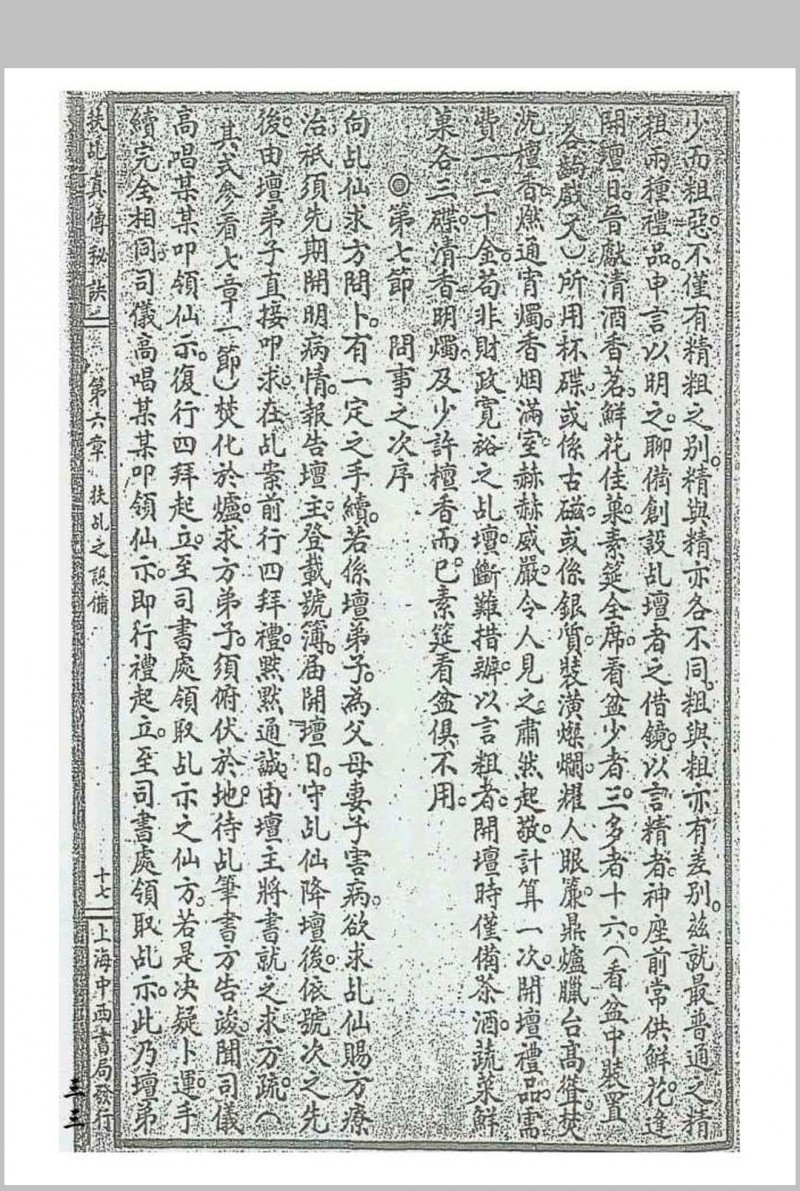 少而粗惡。不僅有精粗之別。精與精亦各不同。粗與粗亦有差別。茲就最普通之精
粗兩種禮品。申言以明之。聊備創設乩壇者之借鏡。以言精者。神座前常供鮮花。逢
開壇日。晉獻清酒香茗。鮮花佳菓。素筵全席。看盆少者三。多者十六。(看盆中裝置
各齣戲文)所用杯碟。或係古磁。或係銀質。裝潢燦爛。耀人眼簾。鼎爐臘台高聳。焚
沈檀香。燃通宵燭。香烟滿室。赫赫威嚴。令人見之。肅然起敬。計算一次。開壇禮品。需
費一二十金。苟非財政寬裕之乩壇。斷難措辦。以言粗者。開壇時僅備茶酒。蔬菜鮮
菓各三碟。清香明燭。及少許檀香而已。素筵看盆俱不用。
◎第七節 問事之次序
向乩仙求方問卜。有一定之手續。若係壇弟子。為父母妻子害病。欲求乩仙賜方療
治。祇須先期開明病情。報告壇主。登載號簿。屆開壇日。守乩仙降壇後。依號次之先
後。由壇弟子直接叩求。在乩案前行四拜禮。默默通誠。由壇主將書就之求方疏。(
其式參看七章一節)焚化於爐。求方弟子。須俯伏於地。待乩筆書方告竣。聞司儀
高唱某某叩領仙示。復行四拜起立。至司書處領取乩示之仙方。若是決疑卜運。手
續完全相同。司儀高唱某某叩領仙示。即行禮起立。至司書處領取乩示。此乃壇弟
扶乩真傳秘訣 第六章 扶乩之設備 十七 上海中西書局發行
三三